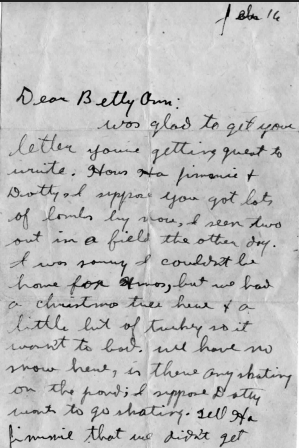 Feb 16
Dear Betty Ann:
was glad to get your
letter youre getting quest to
write. Hows Ha Jimmie &
Dotty, I suppose you got lots
of lambs by now, I seen two
out in a field the other day.
I was sorry I couldn't be
home for Xmas, but we had
a christmas tree here & a
little bit of turkey so it
wasnt to bad. we have no
snow here, is there any skating
on the pond, I suppose Dotty
wants to go skating. Tell Ha
Jimmie that we didn't get